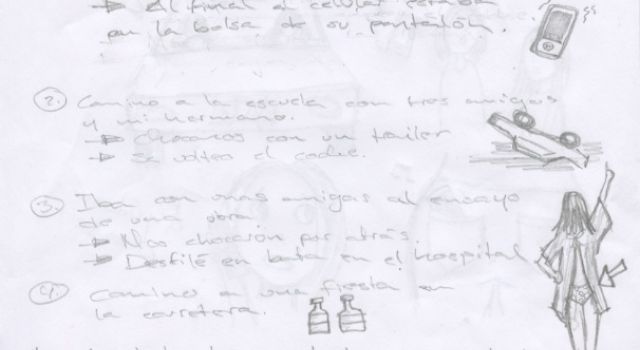 → Al final el celular estaba
en la bolsa de su pantalón.
2. Camino a la escuela con tres amigos
y mi hermano.
→ chocamos con un trailer
→ Se volteo el coche.
3. Iba con unas amigas al ensayo
de una obra
→ Nos chocaron por atrás
→ Desfilé en bata en el hospital
4. Camino a una fiesta en
la carretera.